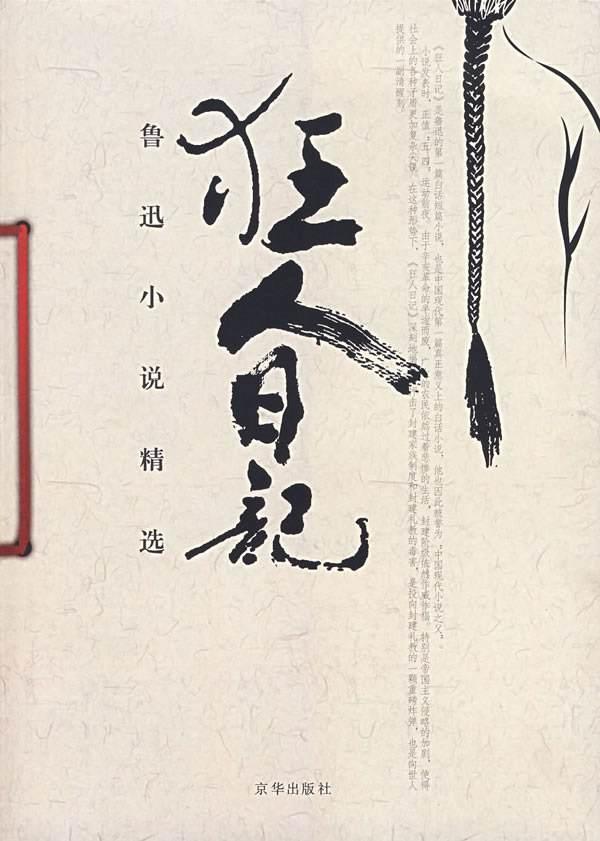 狂人日記
鲁迅小说精选
《狂人日记》是鲁迅的第一篇白话短篇小说，也是中国现代第一篇真正意义上的白话小说，他也因此被誉为“中国现代小说之父”。
小说发表时，正值“五四”运动前夜。由于辛亥革命的半途而废，广的农民依然过着悲惨的生活，封建阶级依然作威作福。特别是帝国主义侵略的加剧，使得
社会上的各种矛盾更加复杂尖锐。在这种形势下，《狂人日记》深刻地击了封建家族制度和封建礼教的毒害，是投向封建礼教的一颗重磅炸弹，也是向世人
提供的一副清醒剂。
京华出版社